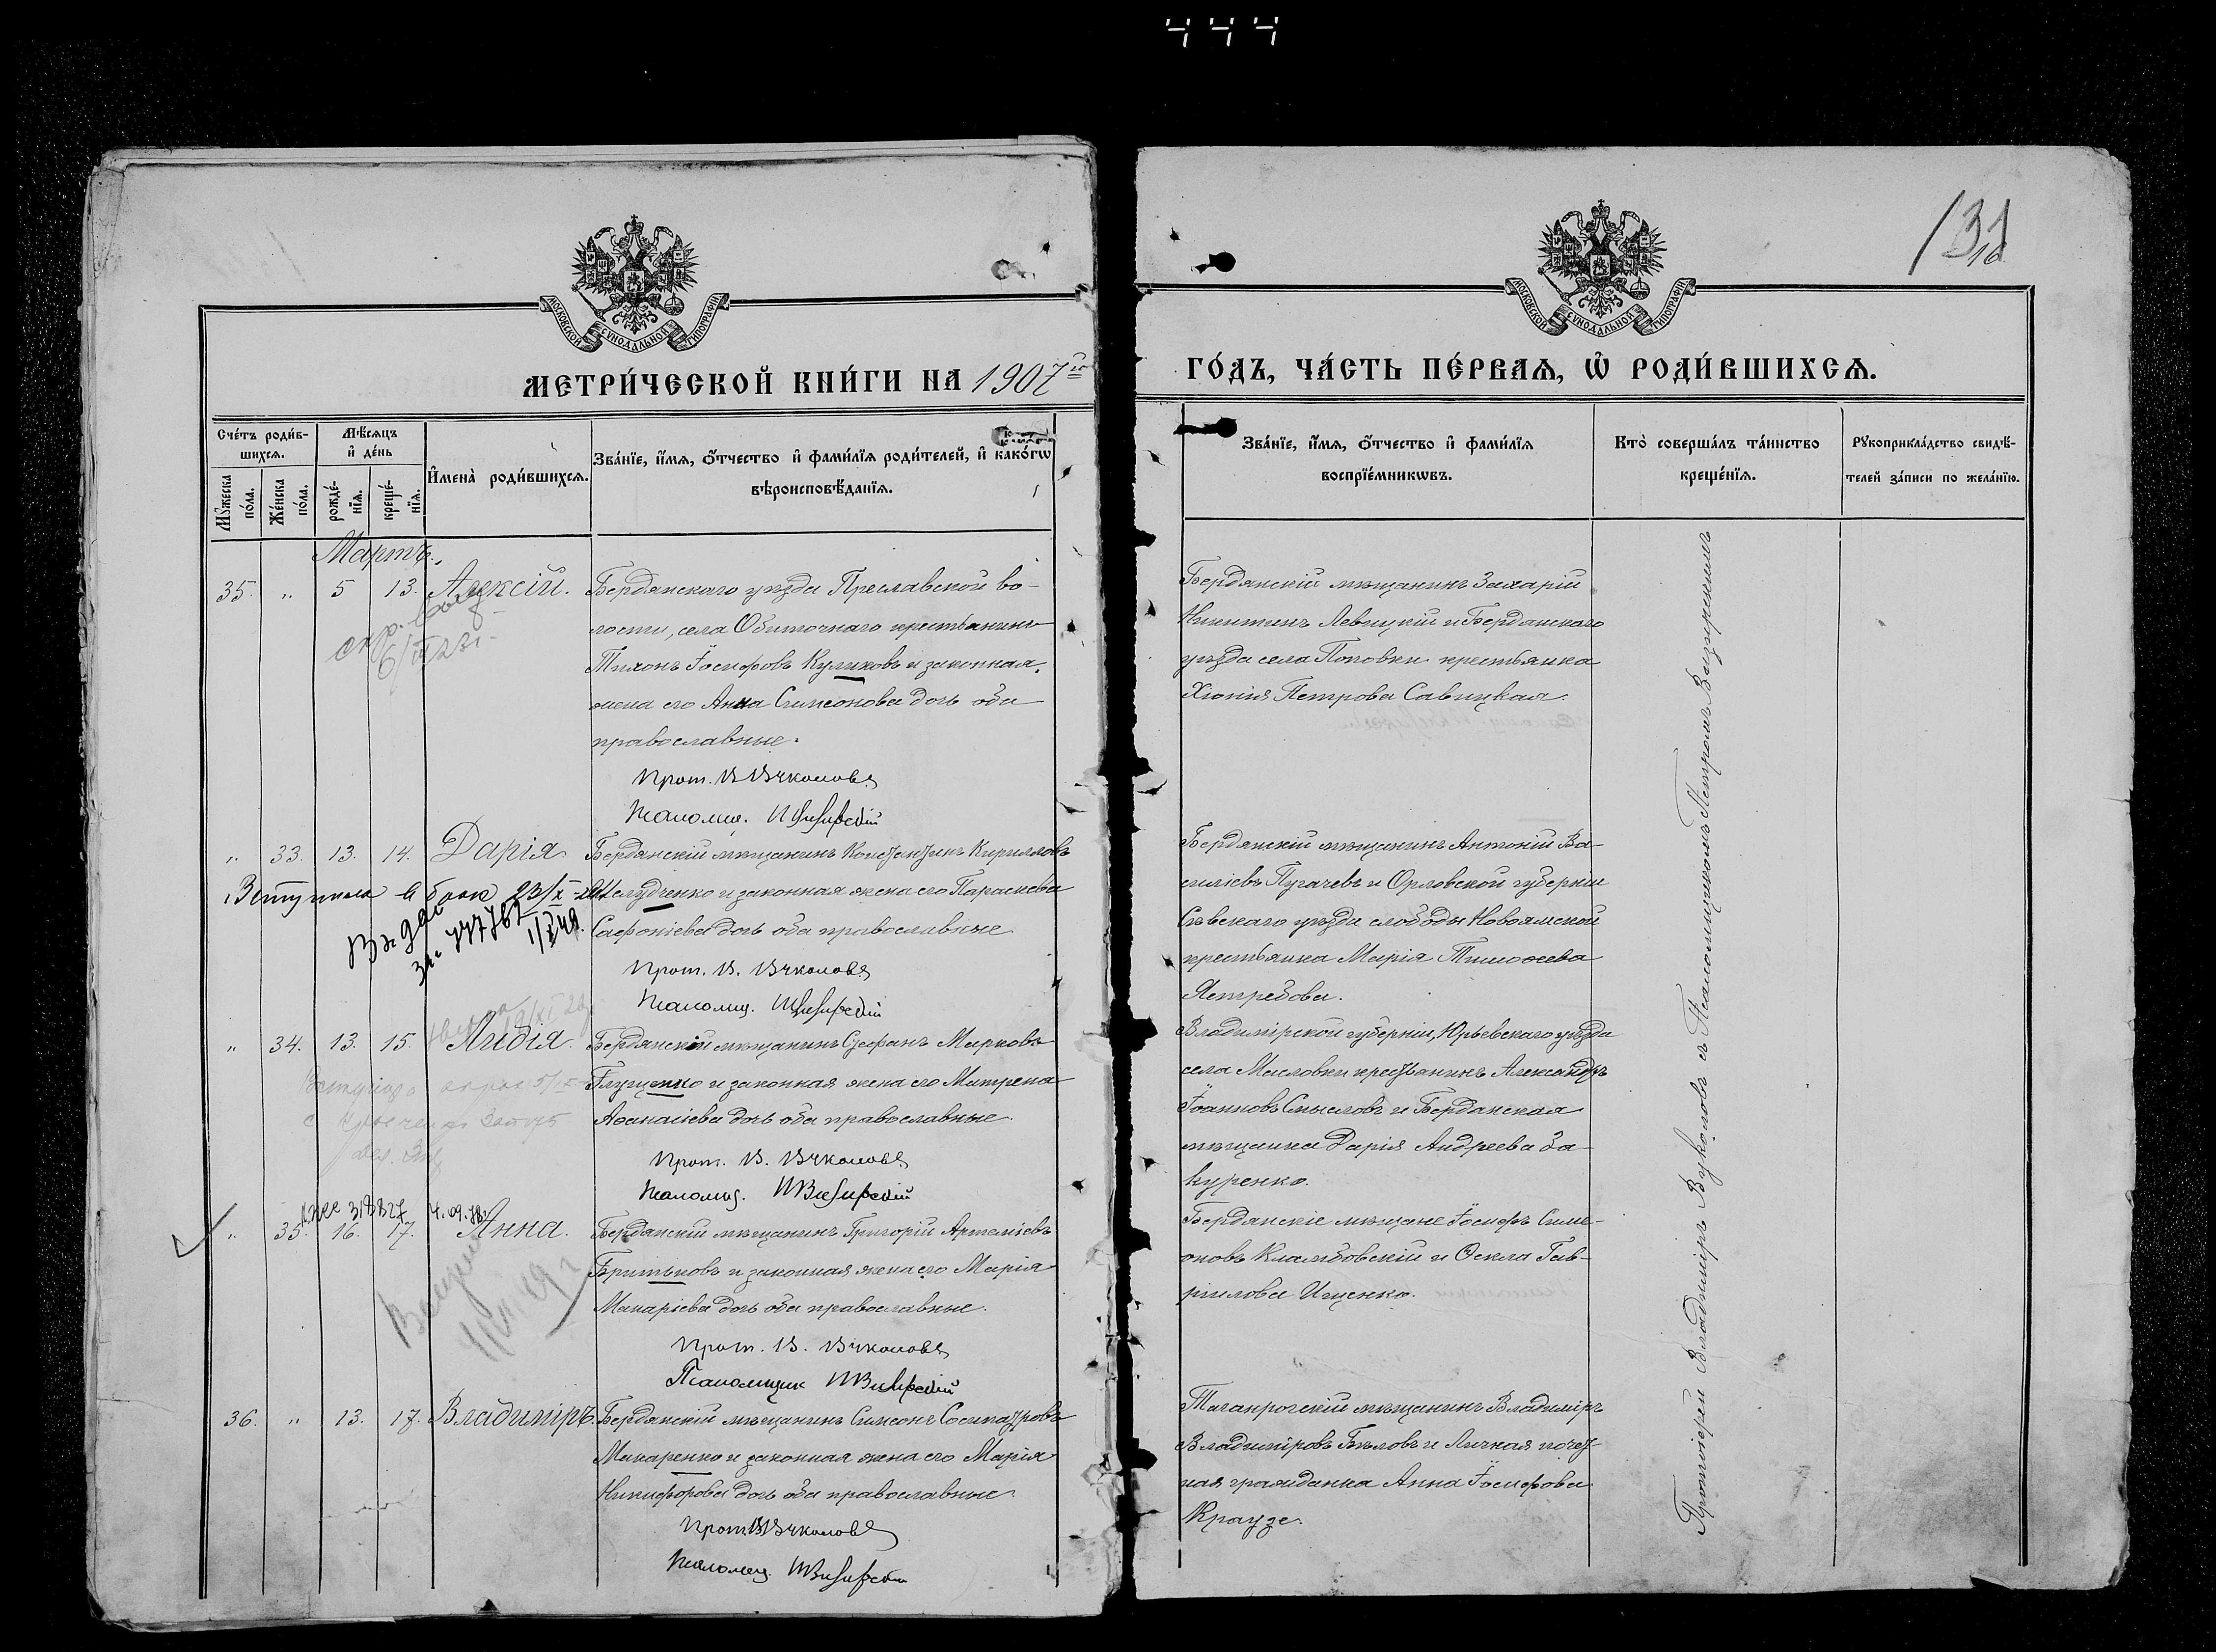 444
131
МОСКОВСКОЙ СѴНОДАЛЬНОЙ ТИПОГРАФІИ
МОСКОВСКОЙ СѴНОДАЛЬНОЙ ТИПОГРАФІИ
МЕТРИ́ЧЕСКОЙ КНИ́ГИ НА 1907й
ГО́ДЪ, ЧА́СТЬ ПЕ́РВАѦ, Ѽ РОДИ́ВШИХСѦ.
Сче́тъ роди́в-
шихсѧ.
Мꙋ́жеска по́ла.
Же́нска по́ла.
Мѣ́сѧцъ
и҆ де́нь
рожде́-
нїѧ.
креще́-
нїѧ.
И҆мена̀ роди́вшихсѧ.
Зва́нїе, и҆́мѧ, ѻ҆́тчество и҆ фами́лїѧ роди́телей, и҆ како́гѡ
вѣроисповѣ́данїѧ.
Зва́нїе, и҆́мѧ, ѻ҆́тчество и҆ фами́лїѧ
воспрїе́мникѡвъ.
Кто̀ соверша́лъ та́инство
креще́нїѧ.
Рꙋкоприкла́дство свидѣ́-
телей за́писи по жела́нїю.
Мартъ.
35. " 5 13. Алексій.
Бердянскаго уѣзда Преславской во-
лости, села Обиточнаго крестьянинъ
Тихонъ Іосифовъ Куликовъ и законная
жена его Анна Симеонова дочь оба
православные.
Прот. В Вуколовъ
Псаломщ.
Бердянскій мѣщанинъ Захарій
Никитинъ Левицкій и Бердянскаго
уѣзда села Поповки крестьянка
Хіонія Петрова Савицкая.
" 33. 13. 14. Дарія
Бердянскій мѣщанинъ Константинъ Кирилловъ
Шелудченко и законная жена его Параскева
Сафоніева дочь оба православные
Прот. В. Вуколовъ
Псаломщ.
Вступила в брак 23/X
Бердянскій мѣщанинъ Антоній Ва-
силіевъ Пугачевъ и Орловской губерніи
Сѣвскаго уѣзда слободы Новоямской
крестьянка Марія Тимоѳеева
Ястребова.
" 34. 13. 15. Лидія.
Бердянскій мѣщанинъ Стефанъ Марковъ
Глущенко и законная жена его Матрена
Аѳанасіева дочь оба православные.
Прот. В. Вуколовъ
Псаломщ.
Владимірской губерніи, Юрьевскаго уѣзда
села Масловки крестьянинъ Александръ
Іоанновъ Смысловъ и Бердянская
мѣщанка Дарія Андреева За-
куренко.
" 35. 16. 17. Анна.
Бердянскій мѣщанинъ Григорій Артеміевъ
Бритьковъ и законная жена его Марія
Макаріева дочь оба православные.
Прот. В. Вуколовъ
Псаломщик
Бердянскіе мѣщане Іосифъ Симе-
оновъ Кламбовскій и Ѳекла Гав-
риилова Ищенко.
36. " 13. 17. Владиміръ.
Бердянскій мѣщанинъ Симеонъ Сосипатровъ
Макаренко и законная жена его Марія
Никифорова дочь оба православные.
Прот. В Вуколовъ
Псаломщ.
Таганрогскій мѣщанинъ Владиміръ
Владиміровъ Бѣловъ и Личная почет-
ная гражданка Анна Іосифова
Краузе.
Протоіерей Владиміръ Вуколовъ съ Псаломщикомъ Петромъ